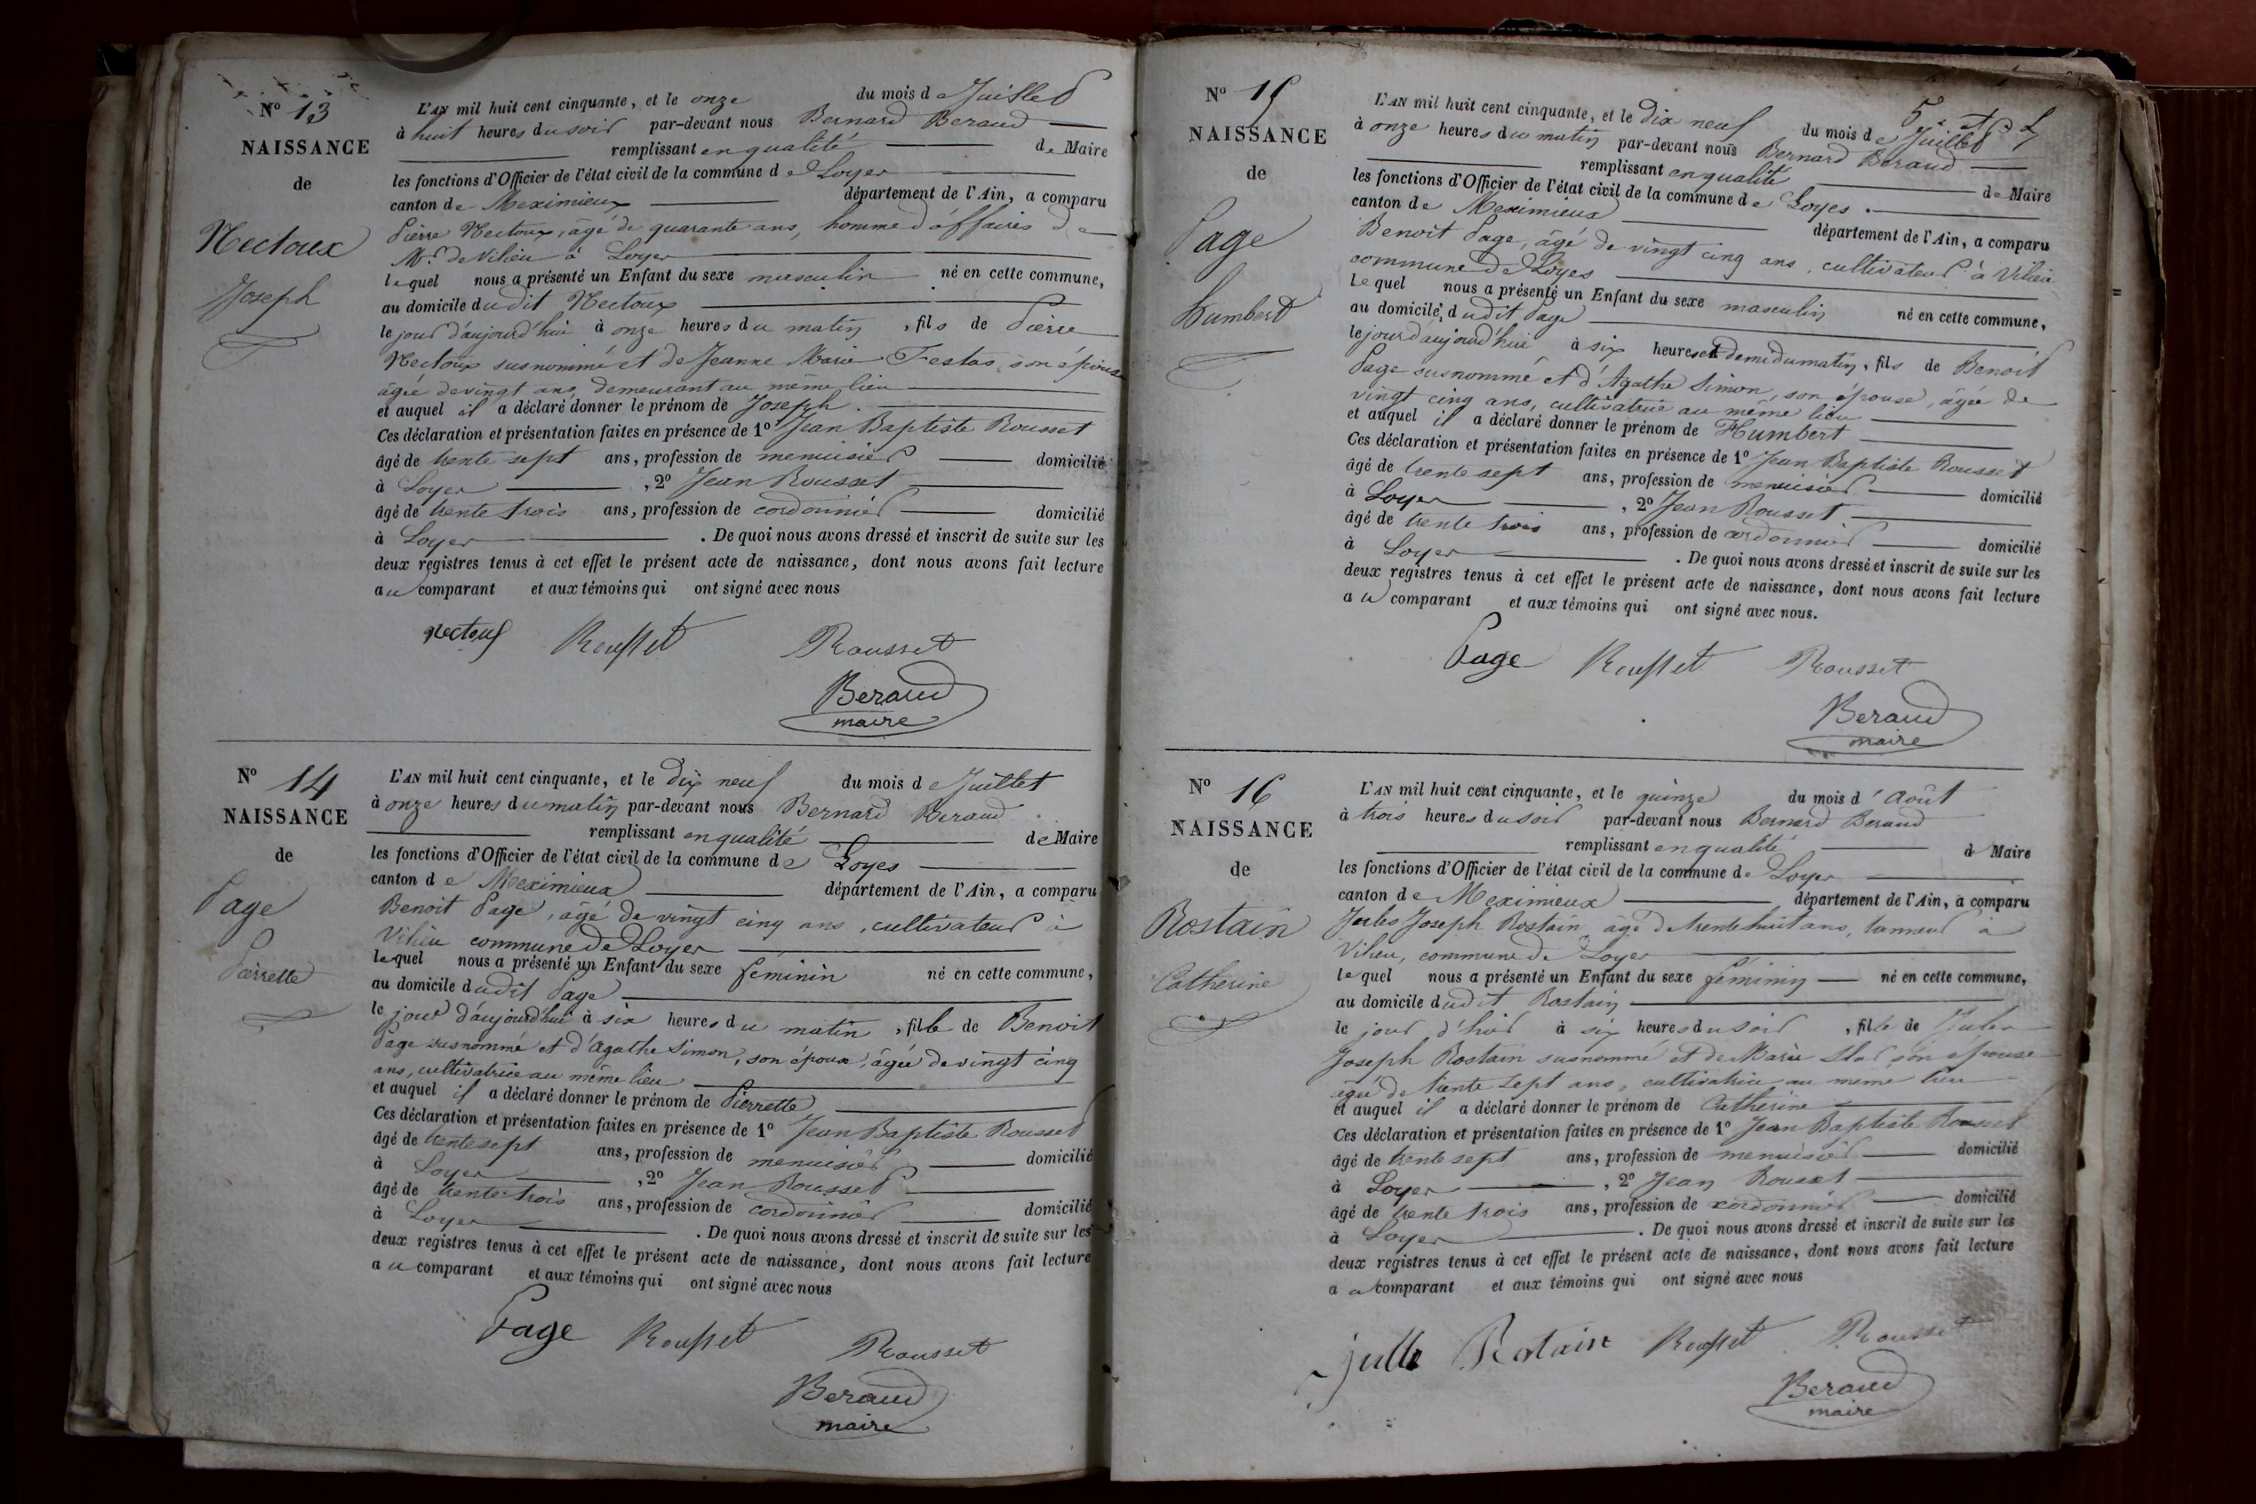 N° 13
NAISSANCE
de
Nectoux
Joseph
L'AN mil huit cent cinquante, et le onze du mois de Juillet
à huit heures du soir par-devant nous Bernard Beraud
remplissant en qualité de Maire
les fonctions d'Officier de l'état civil de la commune de Loyes
canton de Meximieux département de l'Ain, a comparu
Pierre Nectoux, âgé de quarante ans, homme d'affaires de
Mr. de Vilieu à Loyes
lequel nous a présenté un Enfant du sexe masculin né en cette commune,
au domicile dudit Nectoux
le jour d'aujourd'hui à onze heures du matin, fils de Pierre
Nectoux susnommé et de Jeanne Marie Festas, son épouse
âgée de vingt ans, demeurant au même lieu
et auquel il a déclaré donner le prénom de Joseph.
Ces déclaration et présentation faites en présence de 1° Jean Baptiste Rousset
âgé de trente sept ans, profession de menuisier domicilié
à Loyes, 2° Jean Rousset
âgé de trente trois ans, profession de cordonnier domicilié
à Loyes. De quoi nous avons dressé et inscrit de suite sur les
deux registres tenus à cet effet le présent acte de naissance, dont nous avons fait lecture
au comparant et aux témoins qui ont signé avec nous
Nectoux Rousset Rousset
Beraud
maire
N° 14
NAISSANCE
de
Page
Pierrette
L'AN mil huit cent cinquante, et le dix neuf du mois de Juillet
à onze heures du matin par-devant nous Bernard Beraud
remplissant en qualité de Maire
les fonctions d'Officier de l'état civil de la commune de Loyes
canton de Meximieux département de l'Ain, a comparu
Benoit Page, âgé de vingt cinq ans, cultivateur à
Vilieu commune de Loyes
lequel nous a présenté un Enfant du sexe féminin né en cette commune,
au domicile dudit Page
le jour d'aujourd'hui à six heures du matin, fille de Benoit
Page susnommé et d'Agathe Simon, son épouse, âgée de vingt cinq
ans, cultivatrice au même lieu
et auquel il a déclaré donner le prénom de Pierrette
Ces déclaration et présentation faites en présence de 1° Jean Baptiste Rousset
âgé de trente sept ans, profession de menuisier domicilié
à Loyes, 2° Jean Rousset
âgé de trente trois ans, profession de cordonnier domicilié
à Loyes. De quoi nous avons dressé et inscrit de suite sur les
deux registres tenus à cet effet le présent acte de naissance, dont nous avons fait lecture
au comparant et aux témoins qui ont signé avec nous
Page Rousset Rousset
Beraud
maire
N° 15
NAISSANCE
de
Page
Humbert
L'AN mil huit cent cinquante, et le dix neuf du mois de Juillet
à onze heures du matin par-devant nous Bernard Beraud
remplissant en qualité de Maire
les fonctions d'Officier de l'état civil de la commune de Loyes.
canton de Meximieux département de l'Ain, a comparu
Benoit Page, âgé de vingt cinq ans, cultivateur à Vilieu
commune de Loyes
lequel nous a présenté un Enfant du sexe masculin né en cette commune,
au domicile dudit Page
le jour d'aujourd'hui à six heures et demi du matin, fils de Benoit
Page susnommé et d'Agathe Simon, son épouse, âgée de
vingt cinq ans, cultivatrice au même lieu
et auquel il a déclaré donner le prénom de Humbert
Ces déclaration et présentation faites en présence de 1° Jean Baptiste Rousset
âgé de trente sept ans, profession de menuisier domicilié
à Loyes, 2° Jean Rousset
âgé de trente trois ans, profession de cordonnier domicilié
à Loyes. De quoi nous avons dressé et inscrit de suite sur les
deux registres tenus à cet effet le présent acte de naissance, dont nous avons fait lecture
au comparant et aux témoins qui ont signé avec nous.
Page Rousset Rousset
Beraud
maire
N° 16
NAISSANCE
de
Rostain
Catherine
L'AN mil huit cent cinquante, et le quinze du mois d'Août
à trois heures du soir par-devant nous Bernard Beraud
remplissant en qualité d Maire
les fonctions d'Officier de l'état civil de la commune de Loyes
canton de Meximieux département de l'Ain, a comparu
Jules Joseph Rostain âgé de trente huit ans, tanneur à
Vilieu, commune de Loyes
lequel nous a présenté un Enfant du sexe féminin né en cette commune,
au domicile dudit Rostain
le jour d'hier à six heures du soir, fille de Jules
Joseph Rostain susnommé et de Marie son épouse
âgée de trente sept ans, cultivatrice au même lieu
et auquel il a déclaré donner le prénom de Catherine
Ces déclaration et présentation faites en présence de 1° Jean Baptiste Rousset
âgé de trente sept ans, profession de menuisier domicilié
à Loyes, 2° Jean Rousset
âgé de trente trois ans, profession de cordonnier domicilié
à Loyes. De quoi nous avons dressé et inscrit de suite sur les
deux registres tenus à cet effet le présent acte de naissance, dont nous avons fait lecture
au comparant et aux témoins qui ont signé avec nous
Julle Rotain Rousset Rousset
Beraud
maire